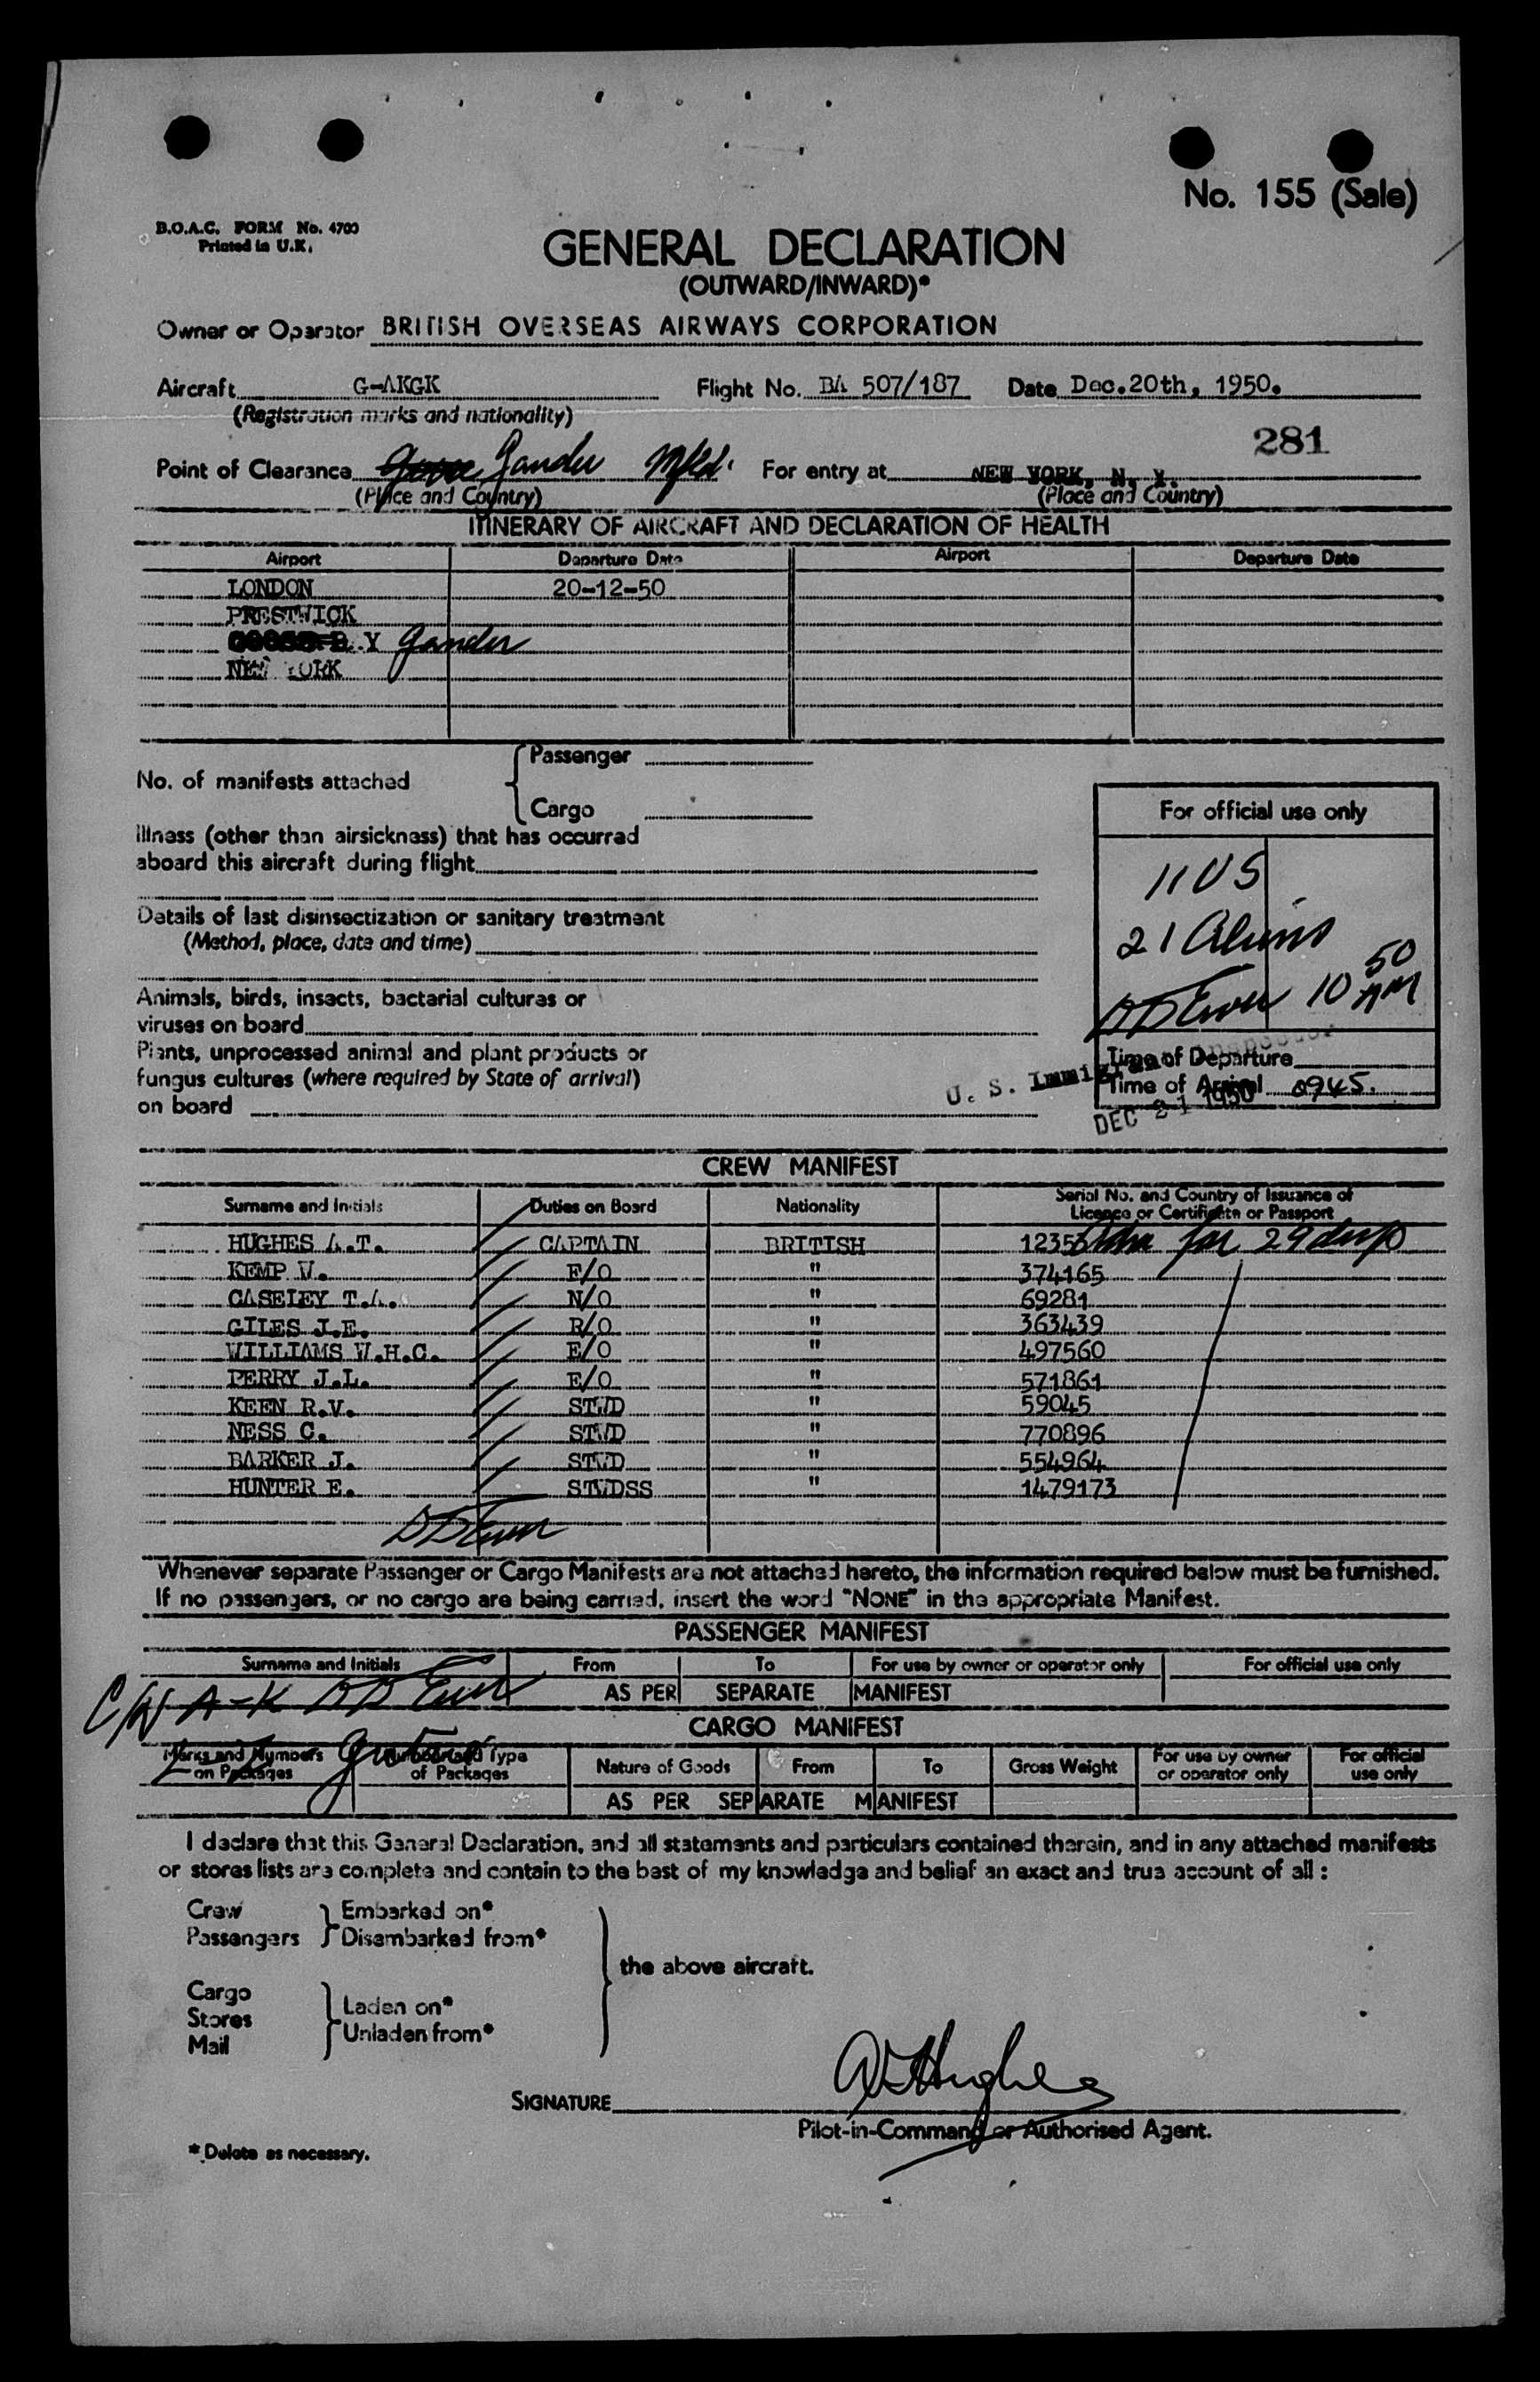 No. 155 (Sale)
B.O.A.C. FORM No. 4700
Printed in U.K.
GENERAL DECLARATION
(OUTWARD/INWARD)*
Owner or Operator BRITISH OVERSEAS AIRWAYS CORPORATION
Aircraft G-AKGK Flight No. BA 507/187 Date Dec.20th, 1950.
(Registration marks and nationality)
281
Point of Clearance Gander Nfld. For entry at NEW YORK, N. Y.
(Place and Country) (Place and Country)
ITINERARY OF AIRCRAFT AND DECLARATION OF HEALTH
Airport Departure Date Airport Departure Date
LONDON 20-12-50
PRESTWICK
Y Gander
NEW YORK
No. of manifests attached Passenger
Cargo
Illness (other than airsickness) that has occurred
aboard this aircraft during flight
Details of last disinsectization or sanitary treatment
(Method, place, date and time)
Animals, birds, insects, bacterial cultures or
viruses on board
Plants, unprocessed animal and plant products or
fungus cultures (where required by State of arrival)
on board
For official use only
11 US
21 Aliens
10 50 AM
Time of Departure
Time of Arrival 0945.
U. S. Immigrant Inspector
DEC 21 1950
CREW MANIFEST
Surname and Initials Duties on Board Nationality Serial No. and Country of Issuance of
Licence or Certificate or Passport
HUGHES A.T. CAPTAIN BRITISH 12353 Adm for 29 days
KEMP W. F/O " 374165
CASELEY T.A. N/O " 69281
GILES J.E. R/O " 363439
WILLIAMS W.H.C. E/O " 497560
PERRY J.L. E/O " 571861
KEEN R.V. STWD " 59045
NESS C. STWD " 770896
BARKER J. STWD " 554964
HUNTER E. STWDSS " 1479173
Whenever separate Passenger or Cargo Manifests are not attached hereto, the information required below must be furnished.
If no passengers, or no cargo are being carried, insert the word "NONE" in the appropriate Manifest.
PASSENGER MANIFEST
Surname and Initials From To For use by owner or operator only For official use only
C/W A-K AS PER SEPARATE MANIFEST
CARGO MANIFEST
Marks and Numbers on Packages Number and Type of Packages Nature of Goods From To Gross Weight For use by owner or operator only For official use only
AS PER SEPARATE MANIFEST
I declare that this General Declaration, and all statements and particulars contained therein, and in any attached manifests
or stores lists are complete and contain to the best of my knowledge and belief an exact and true account of all :
Crew Embarked on*
Passengers Disembarked from*
the above aircraft.
Cargo
Stores Laden on*
Mail Unladen from*
SIGNATURE A T Hughes
Pilot-in-Command or Authorised Agent.
* Delete as necessary.